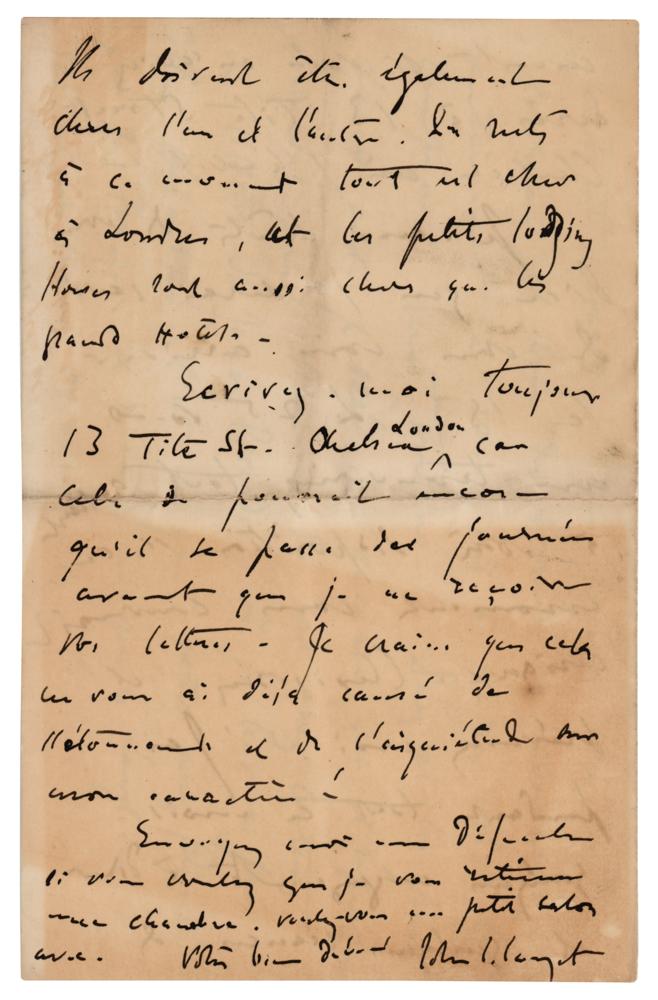 Ils doivent être également
chers l'un et l'autre. Du reste
à ce moment tout est cher
à Londres, et les petits lodging
Houses sont aussi chers que les
grands Hotels -
Ecrivez-moi toujours
13 Tite St. Chelsea London car
cela se pourrait encore
qu'il se passe des journées
avant que je ne reçoive
vos lettres - Je crains que cela
ne vous ai déjà causé de
l'étonnement et de l'inquiétude sur
mon caractère!
Envoyez moi une Dépeche
si vous voulez que je vous retienne
une chambre. voulez-vous un petit salon
avec. Votre bien dévoué John S. Sargent